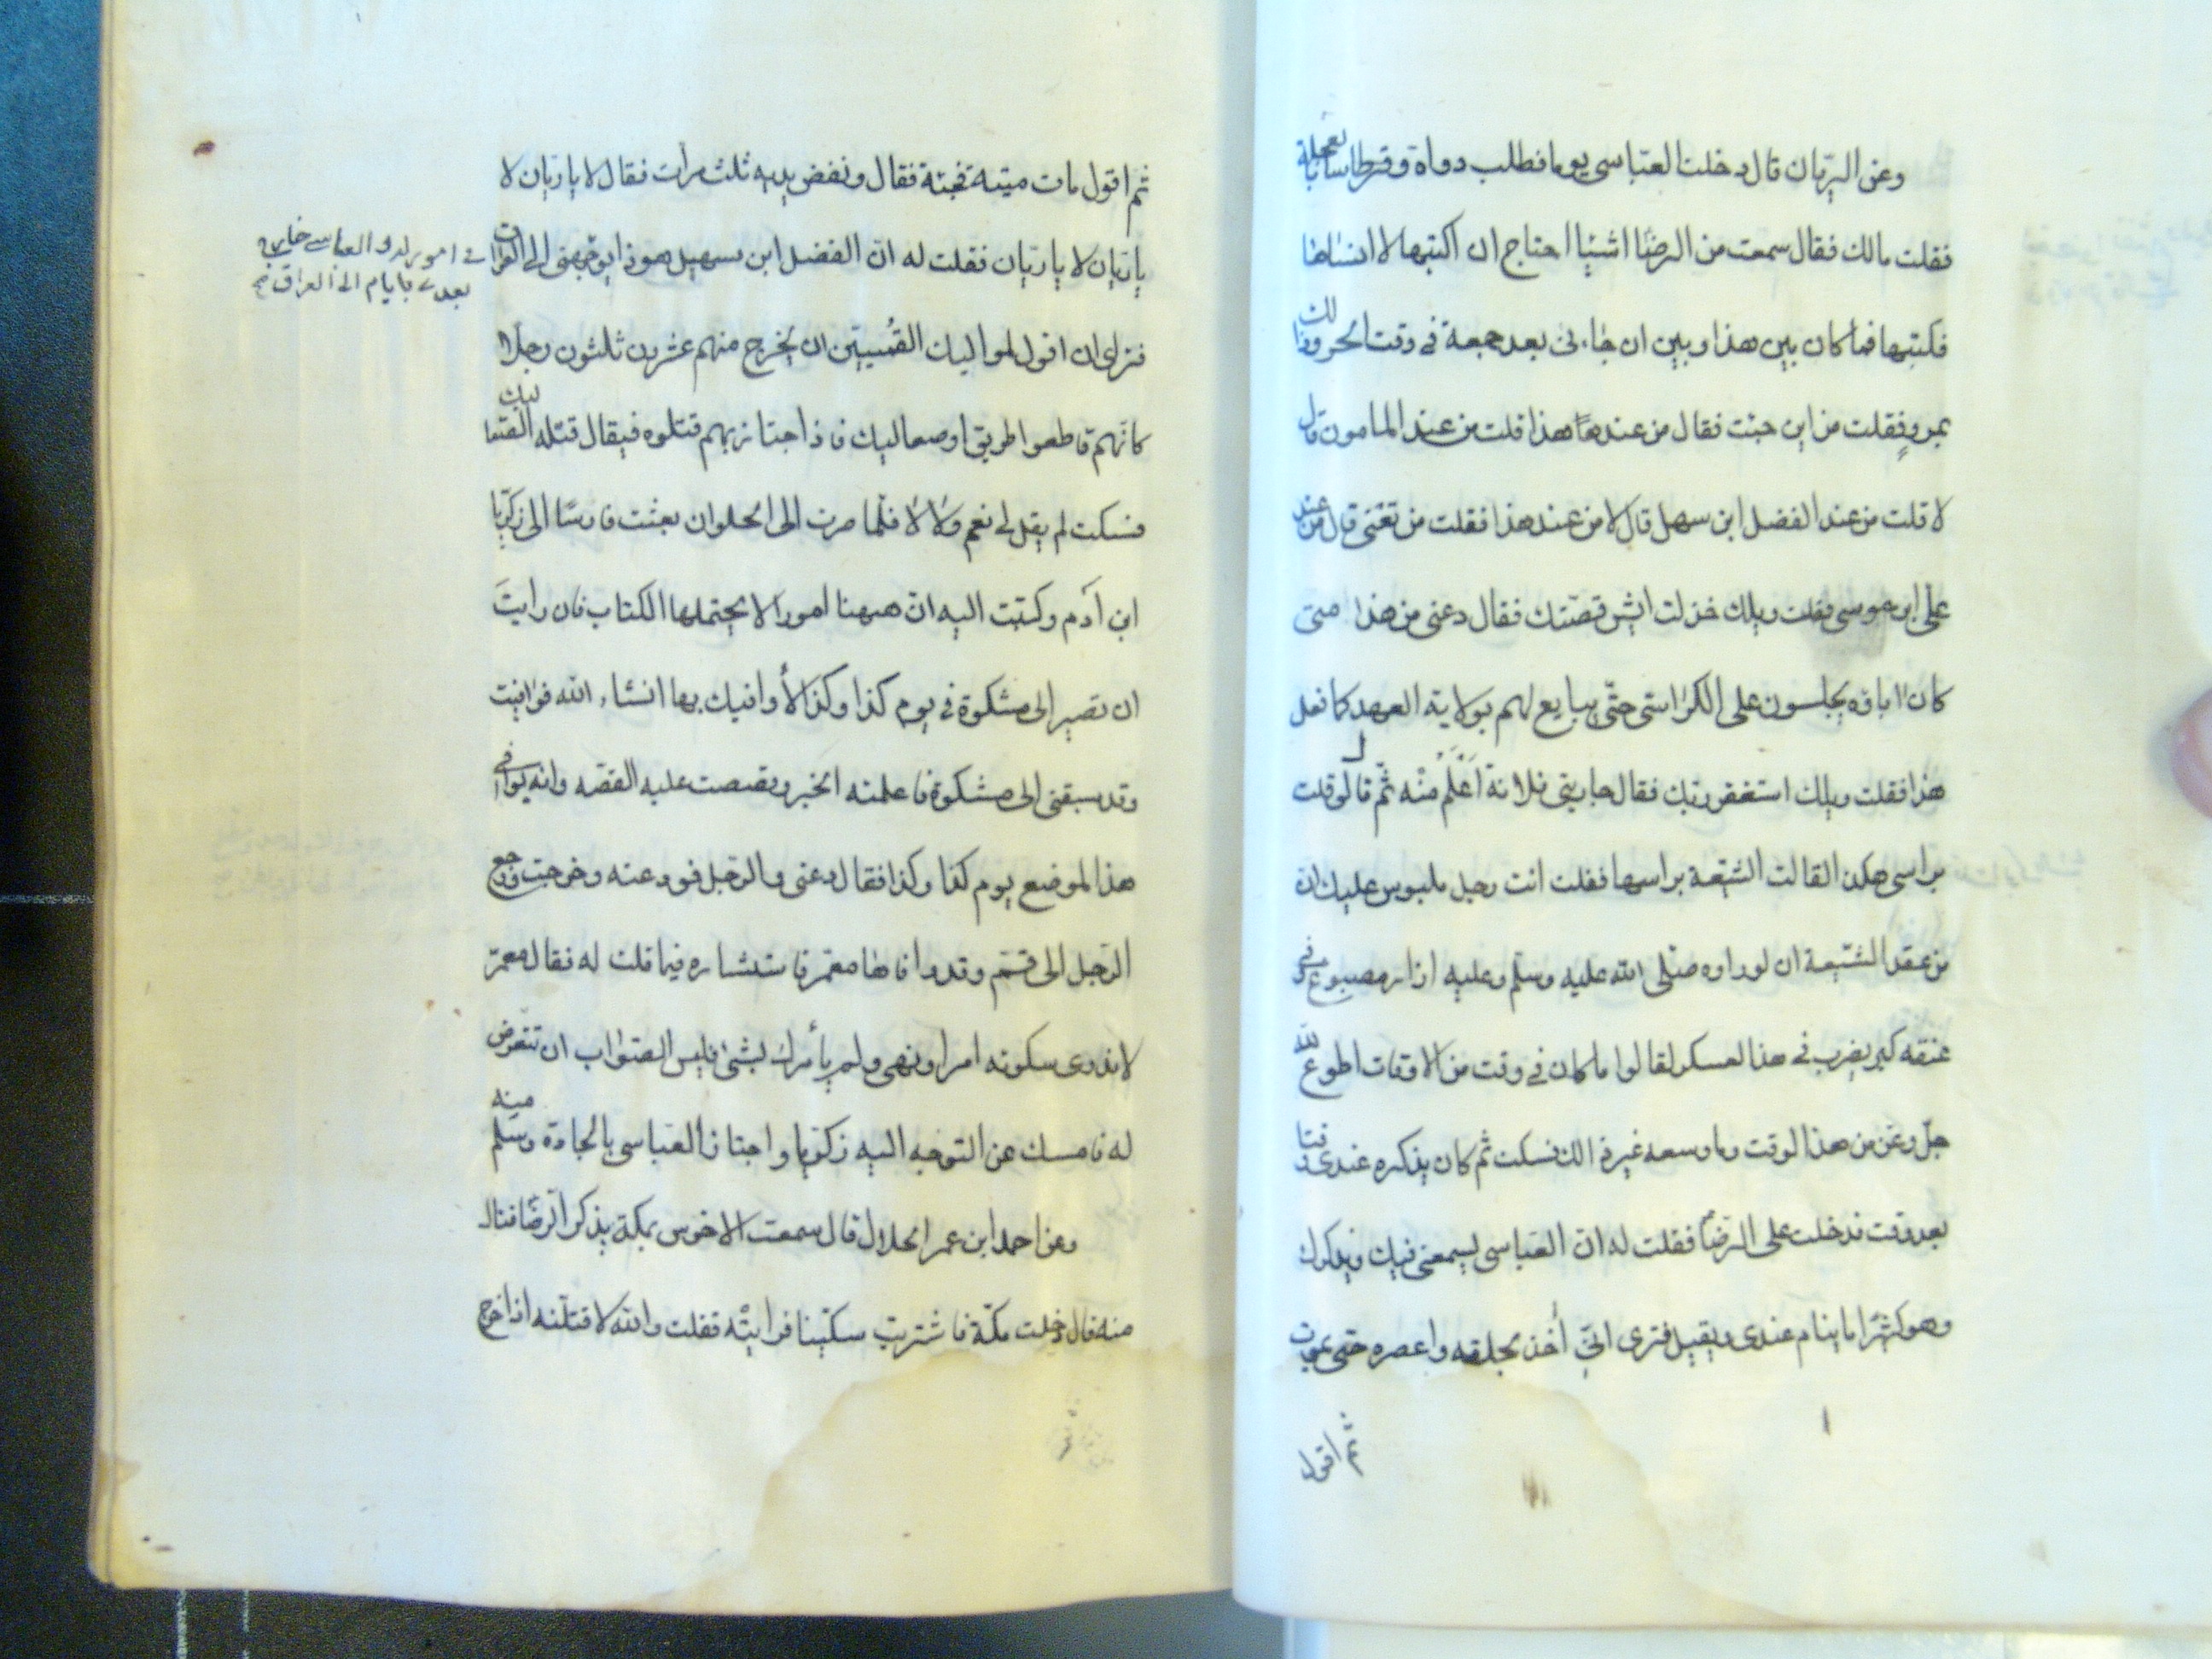 وعن الريان قال دخلت العباسى يوما فطلب دواة وقرطاسا بالعجلة
فقلت مالك فقال سمعت من الرضا اشيئا احتاج ان اكتبها لا انساها
فكتبها فما كان بين هذا وبين ان جاءنى بعد جمعة فى وقت الحر وذلك
بمرو فقلت من اين جئت فقال من عند هذا قلت من عند المامون قال
لا قلت من عند الفضل ابن سهل قال لا من عند هذا فقلت من تعنى قال من عند
على ابن موسى فقلت ويلك خذلت ايش قصتك فقال دعنى من هذا متى
كان اباؤه يجلسون على الكراسى حتى يبايع لهم بولاية العهد كما فعل
هذا فقلت ويلك استغفر ربك فقال جاريتى فلانة اعلم منه ثم قال لو قلت
براسى هكذا لقالت الشيعة براسها فقلت انت رجل ملبوس عليك ان
من عقد الشيعة ان لو راوه صلى الله عليه وسلم وعليه ازار مصبوغ وفى
عنقه كبر يضرب فى هذا العسكر لقالوا ما كان فى وقت من الاوقات اطوع لله
جل وعز من هذا الوقت وما وسعه غير ذلك فسكت ثم كان يذكره عندى وقتا
بعد وقت فدخلت على الرضا فقلت له ان العباسى يسمعنى فيك ويذكرك
وهو كثيرا ما ينام عندى ويقيل فترى انى أخذ بحلقه واعصره حتى يموت
ثم اقول
ثم اقول مات ميتة فجئة فقال ونفض يديه ثلث مرات فقال لا يا ريان لا
يا ريان لا يا ريان فقلت له ان الفضل ابن سهيل هو ذا يوجهنى الى العراق
فى امور لك والعباسى خارج
بعدى بايام الى العراق
فترى ان اقول لمواليك القميين ان يخرج منهم عشرون ثلثون رجلا
كانهم قاطعوا طريق او صعاليك فاذا اجتاز بهم قتلوه فيقال قتله الصعاليك
فسكت لم يقل لى نعم ولا لا فلما صرت الى الحلوان بعثت فارسا الى زكريا
ابن آدم وكتبت اليه ان ههنا امورا لا يحتملها الكتاب فان رايت
ان تصير الى مشكوة فى يوم كذا وكذا لأوافيك بها انشاء الله فوافيت
وقد سبقنى الى مشكوة فاعلمته الخبر وقصصت عليه القصه وانه يوافى
هذا الموضع يوم كذا وكذا فقال دعنى والرجل فودعته وخرجت ورجع
الرجل الى قم وقد وافاها معمر فاستشاره فيما قلت له فقال معمر
لا ندرى سكوته امر او نهى ولم يأمرك بشئ فليس الصواب ان تتعرض
له فامسك عن التوجه اليه زكريا واجتاز العباسى بالجادة وسلم منه
وعن احمد ابن عمر الحلال قال سمعت الاخرس بمكة يذكر الرضا فنال
منه قال دخلت مكة فاشتريت سكينا فرايته فقلت والله لاقتلنه اذا خرج